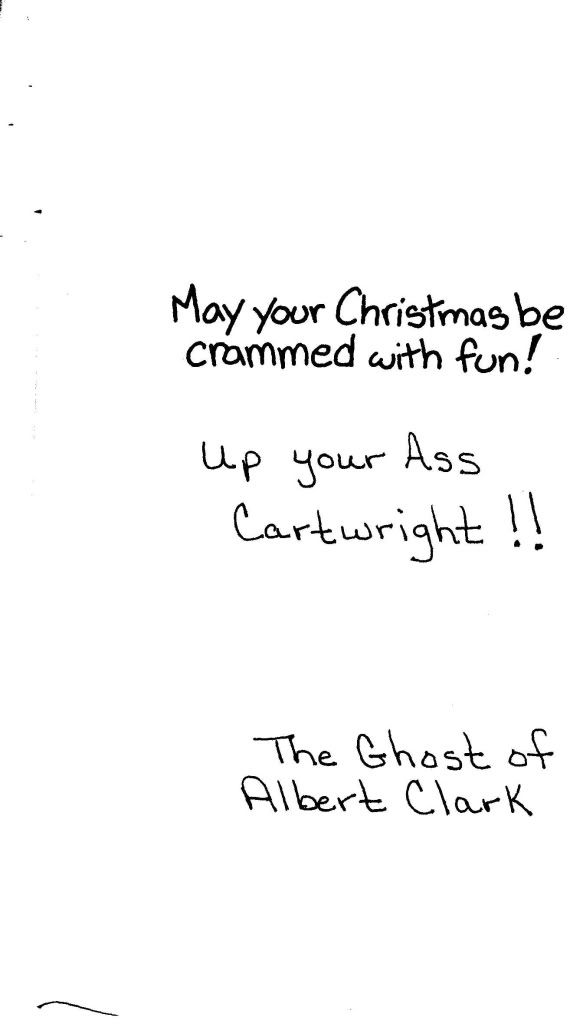 May your Christmas be
crammed with fun!
Up your Ass
Cartwright !!
The Ghost of
Albert Clark